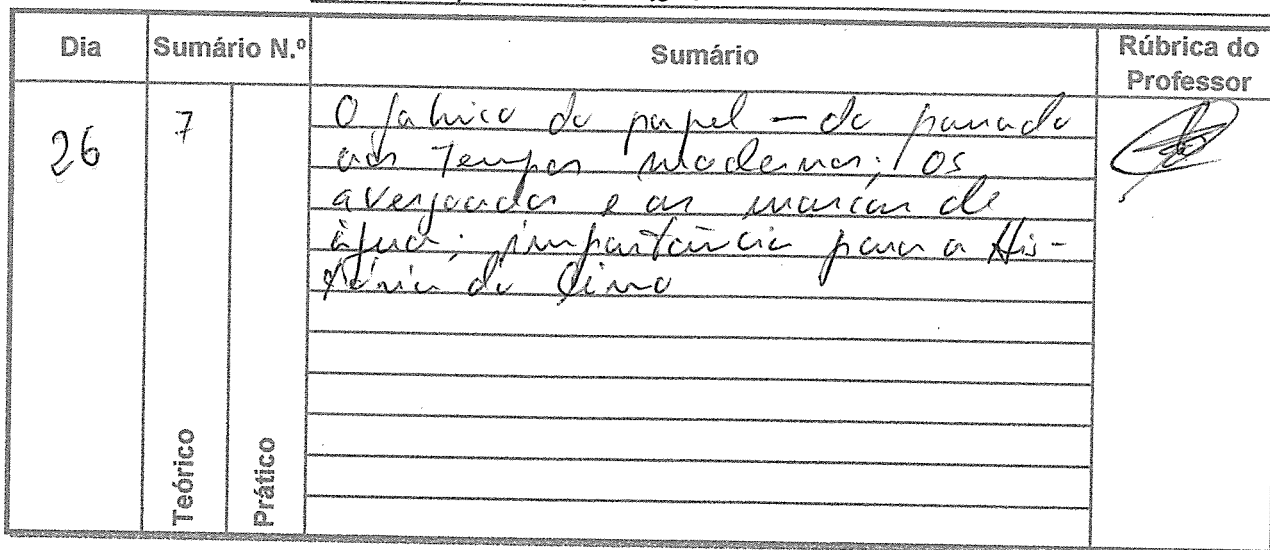 Dia
Sumário N.º
Sumário
Rúbrica do
Professor
26
7
O fabrico do papel – do passado
aos Tempos modernos; os
avergoados e as marcas de
água; importância para a His-
tória do Livro
Teórico
Prático